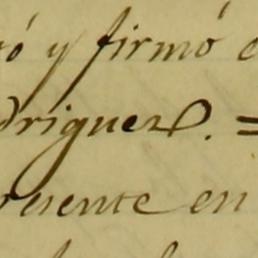 ó y firmó
driguez. =
resente en